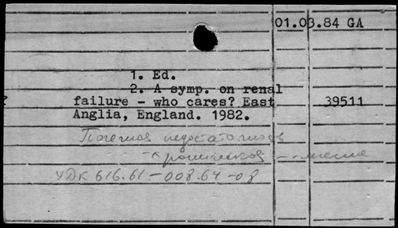 01.03.84 GA
1. Ed.
2. A symp. on renal
failure - who cares? East 39511
Anglia, England. 1982.
Почечная недостаточность
- хроническая - лечение
УДК 616.61-008.64-08